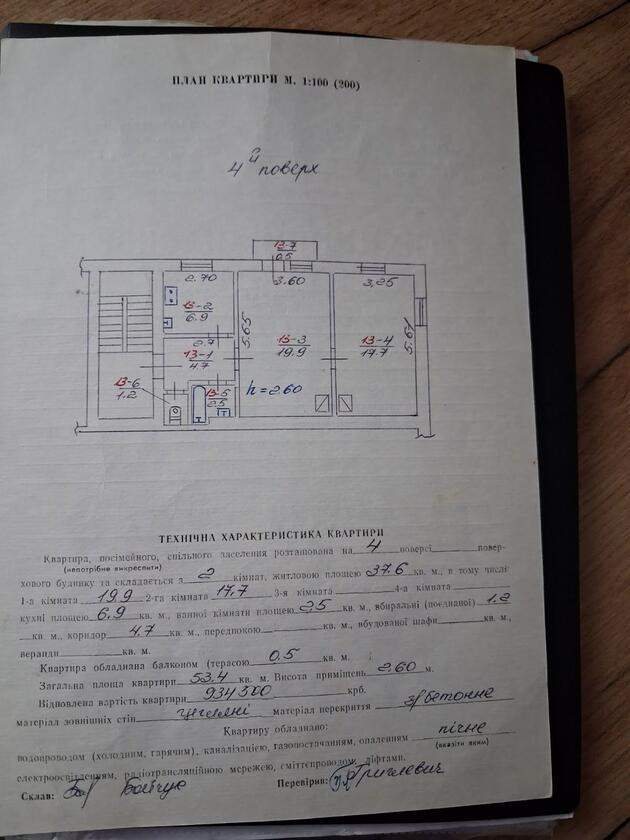 ПЛАН КВАРТИРИ М. 1:100 (200)
4й поверх
13-7
0.5
2.70
3.60
3,25
13-2
6.9
5.65
13-3
19.9
13-4
17.7
5.61
2.7
13-1
4.7
13-6
1.2
13-5
2.5
h=2.60
ТЕХНІЧНА ХАРАКТЕРИСТИКА КВАРТИРИ
Квартира, посімейного, спільного заселення розташована на 4 поверсі повер-
(непотрібне викреслити)
хового будинку та складається з 2 кімнат, житловою площею 37.6 кв. м., в тому числі
1-а кімната 19,9 2-га кімната 17,7 3-я кімната 4-а кімната
кухні площею 6.9 кв. м., ванної кімнати площею 2.5 кв. м., вбиральні (поєднаної) 1.2
кв. м., коридор 4.7 кв. м., передпокою кв. м., вбудованої шафи кв. м.,
веранди кв. м.
Квартира обладнана балконом (терасою) 0.5 кв. м.
Загальна площа квартири 53.4 кв. м. Висота приміщень 2.60 м.
Відновлена вартість квартири 934500 крб.
матеріал зовнішніх стін цегляні матеріал перекриття з/бетонне
Квартиру обладнано:
водопроводом (холодним, гарячим), каналізацією, газопостачанням, опаленням пічне
(вказіти яким)
електроосвітленням, радіотрансляційною мережею, сміттєпроводом, ліфтами.
Склав: Бойчук Перевірив: Григлевич